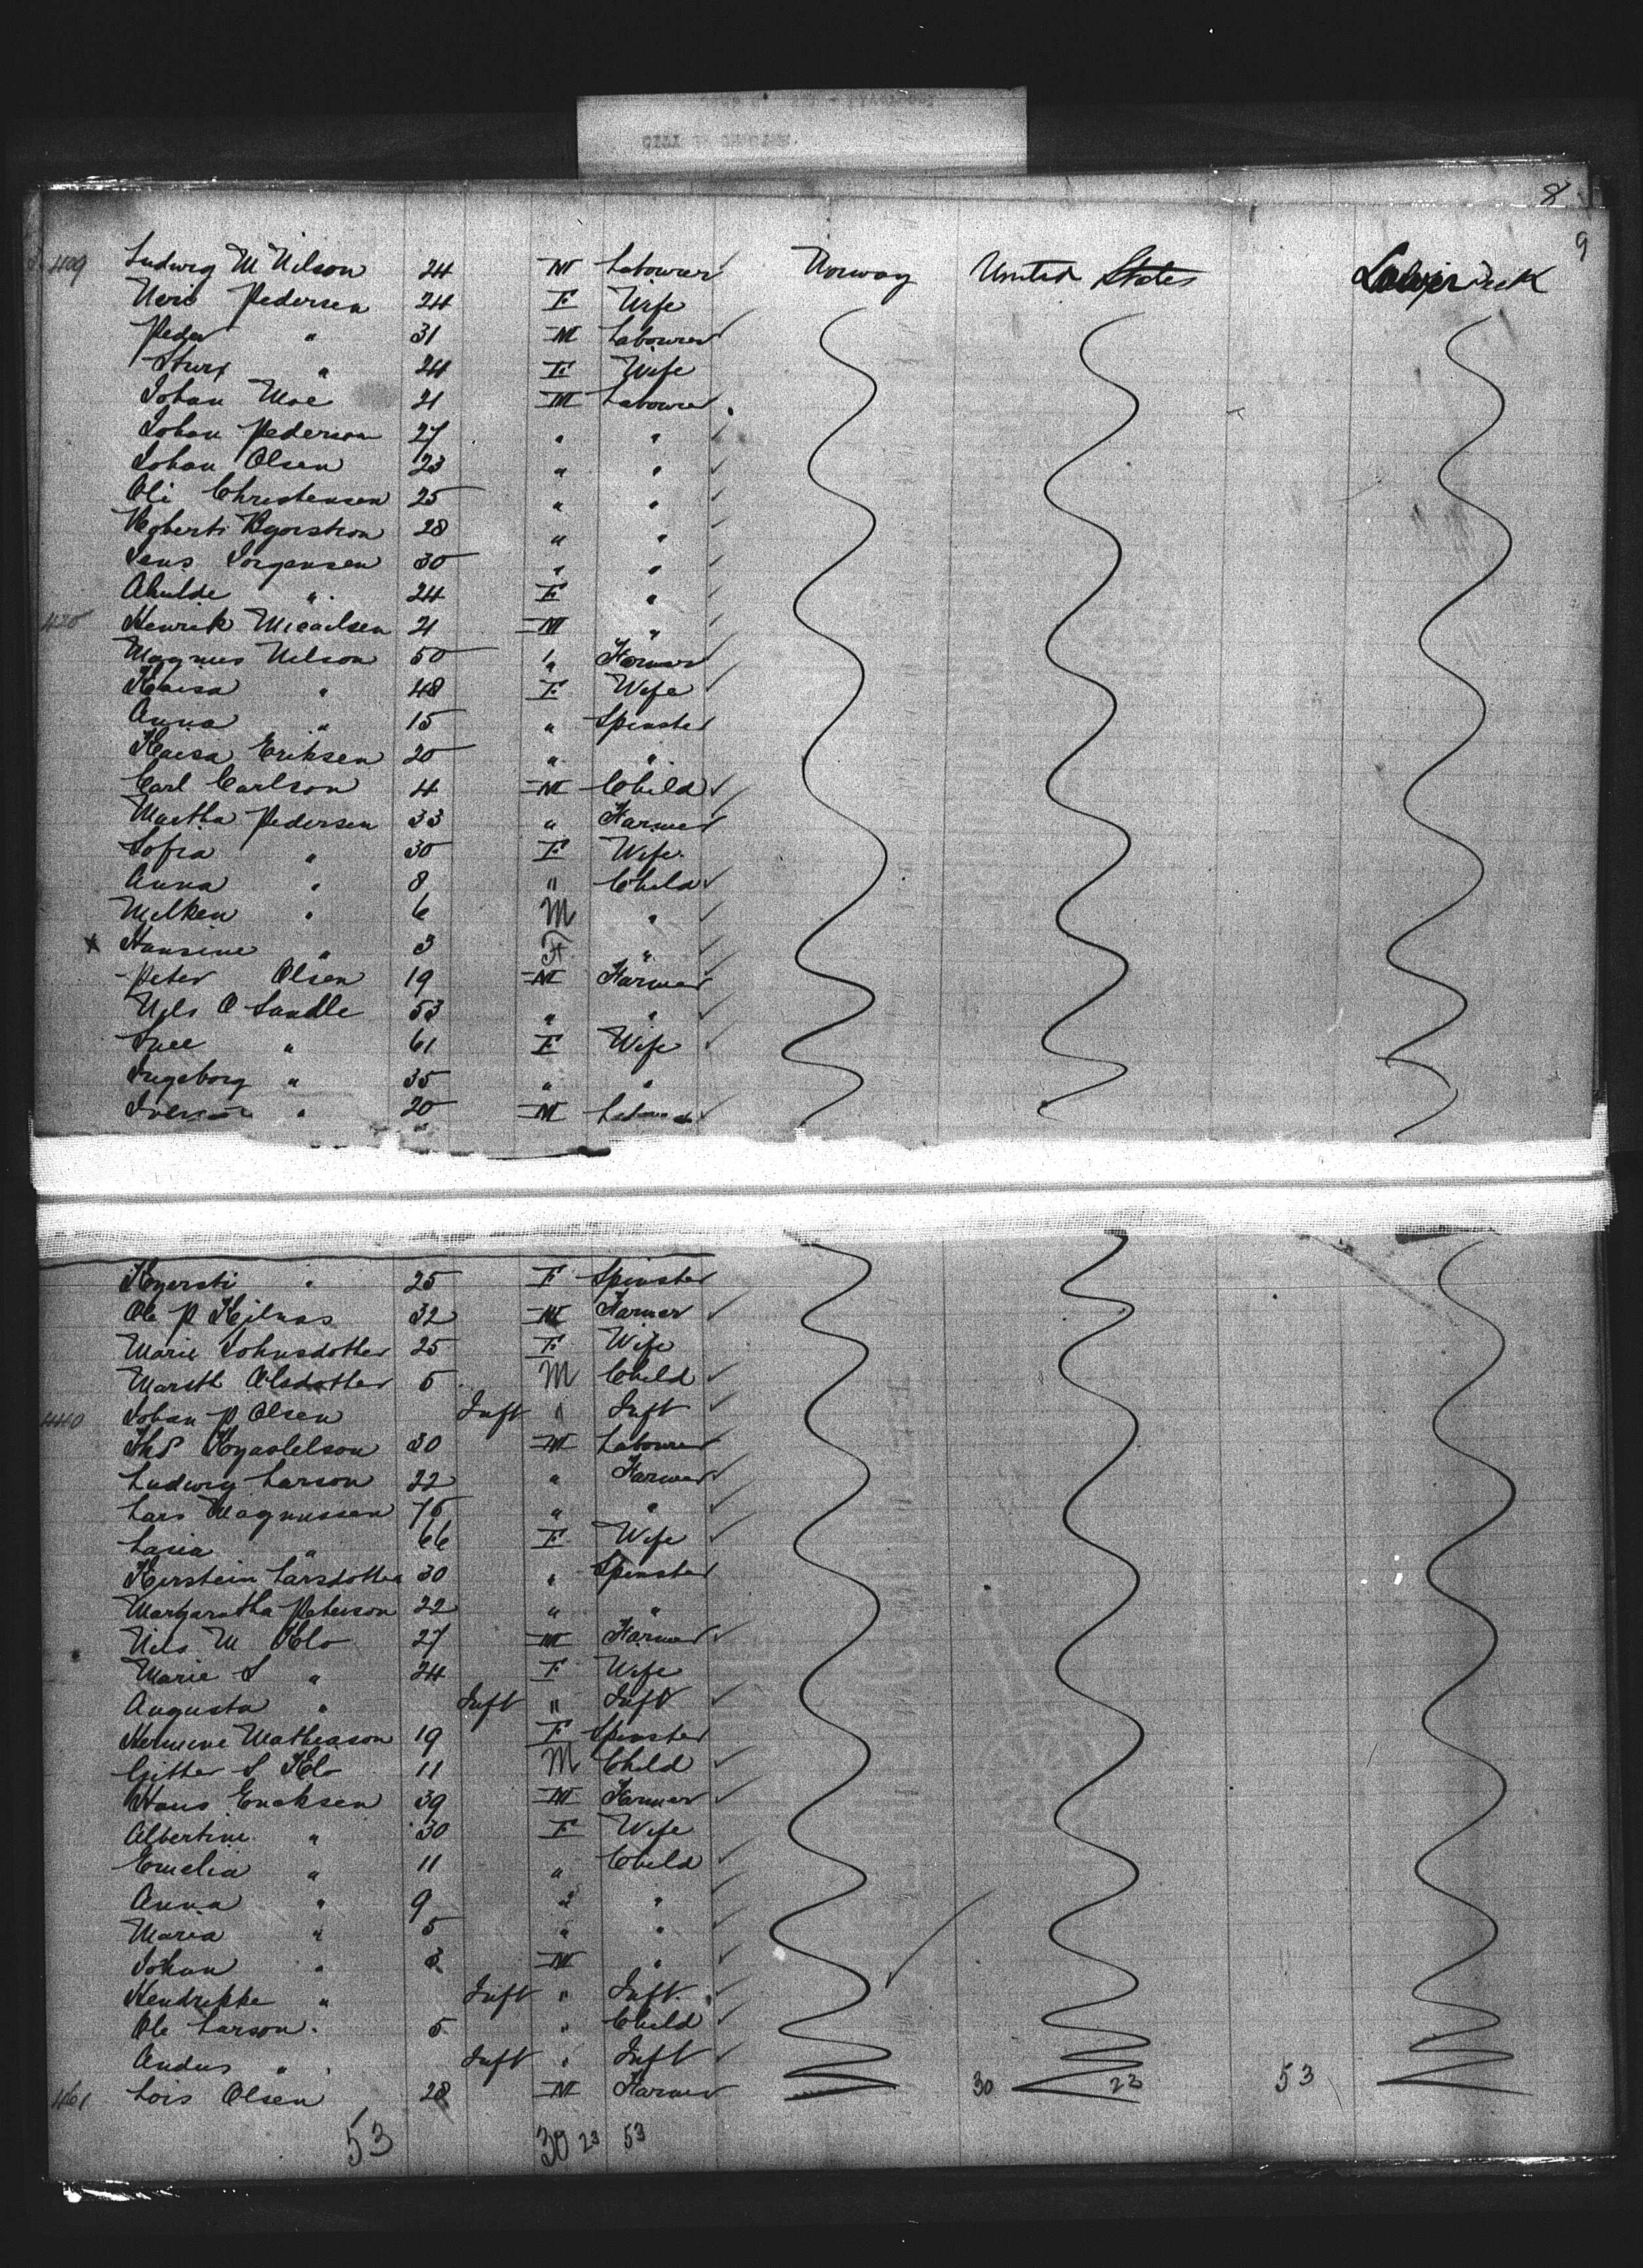 8
9
409 Ludwig M Nilson 24 M Labourer Norway United States Lower Deck
Pedersen 24 F Wife
Peder " 31 M Labourer
" 24 F Wife
Johan Moe 21 M Labourer
Johan Pederson 27 " "
Johan Olsen 23 " "
Ole Christensen 25 " "
28 " "
Jens Jorgensen 30 " "
" 24 F "
420 Henrik Micaelsen 21 M "
Magnus Nilson 50 " Farmer
Kaisa " 48 F Wife
Anna " 15 " Spinster
Kaisa Eriksen 20 " "
Carl Carlson 4 M Child
Martha Pedersen 33 " Farmer
Sofia " 30 F Wife
Anna " 8 " Child
Milken " 6 M "
x Hansine " 3 F "
Peter Olsen 19 M Farmer
Nils O Sandle 53 " "
" 61 F Wife
Ingeborg " 35 " "
" 20 M Labourer
Kyersti " 25 F Spinster
Ole P 32 M Farmer
Marie Johnsdotter 25 F Wife
Marith Olsdotter 5 M Child
440 Johan P Olsen Inft " Inft
30 M Labourer
Ludwig Larson 22 " Farmer
Lars Magnussen 75 " "
" 66 F Wife
Kerstein Larsdotter 30 " Spinster
Margaratha Peterson 22 " "
Nils M Klo 27 M Farmer
Marie S " 24 F Wife
Augusta " Inft " Inft
Hermine Matheason 19 F Spinster
S Klo 11 M Child
Hans Ericksen 39 M Farmer
Albertine " 30 F Wife
Emelia " 11 " Child
Anna " 9 " "
Maria " 5 " "
Johan " 3 M "
Hendrikke " Inft " Inft
Ole Larson 5 " Child
Andus " Inft " Inft
461 Lois Olsen 28 M Farmer 30 23 53
53 30 23 53